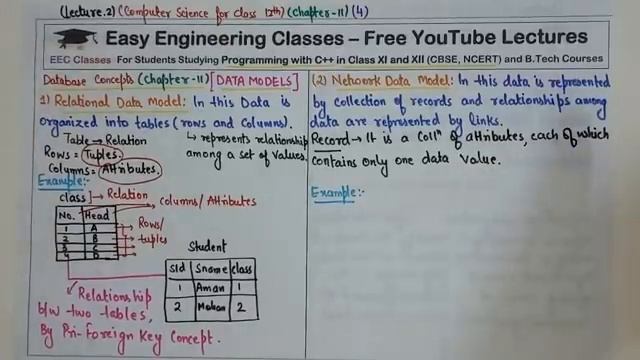 (Lecture.2) (Computer Science for class 12th) (Chapter-11) (4)
Easy Engineering Classes – Free YouTube Lectures
EEC Classes For Students Studying Programming with C++ in Class XI and XII (CBSE, NCERT) and B.Tech Courses
Database Concepts (Chapter-11) [DATA MODELS]
1) Relational Data Model: In this Data is
organized into tables (rows and columns).
Table → Relation
↳ represents relationship
among a set of values.
Rows = Tuples.
Columns = Attributes.
Example:-
class → Relation
columns/Attributes
No. Head
1 A
2 B
3 C
4 D
Rows/
tuples
Student
SId Sname class
1 Aman 1
2 Mohan 2
Relationship
b/w two tables,
By Pri-Foreign Key Concept.
(2) Network Data Model: In this data is represented
by collection of records and relationships among
data are represented by links.
Record → It is a Collⁿ of attributes, each of which
contains only one data value.
Example:-